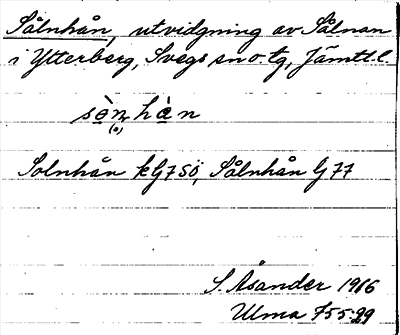 Sålnhån, utvidgning av Sålnan
i Ytterberg, Svegs sn o. tg, Jämtl. l.
sὼn hàn
(o)
Solnhån kG7SÖ, Sålnhån G77
S. Åsander 1916
Ulma 755:29